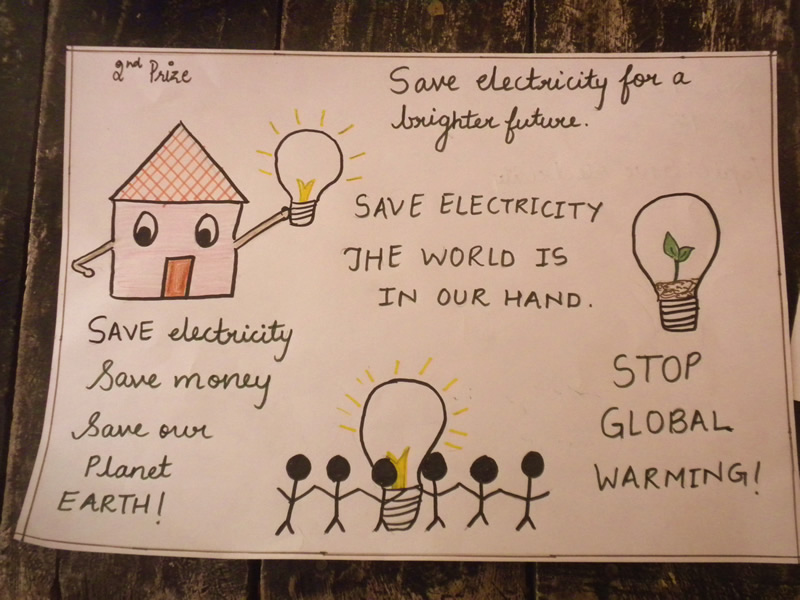 2nd Prize
Save electricity for a
brighter future.
SAVE ELECTRICITY
THE WORLD IS
IN OUR HAND.
SAVE electricity
Save money
Save our
Planet
EARTH!
STOP
GLOBAL
WARMING!